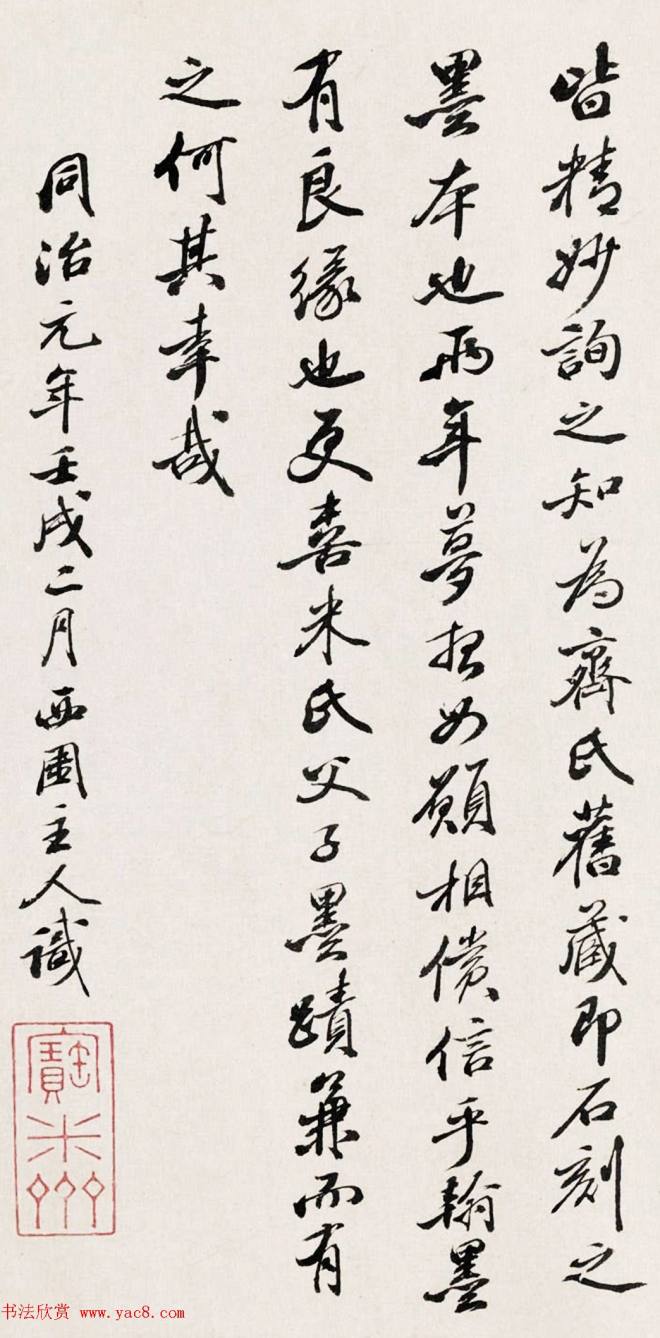 皆精妙詢之知為齊氏舊藏即石刻之
墨本也兩年夢想如願相償信乎翰墨
有良緣也更喜米氏父子墨蹟兼而有
之何其幸哉
同治元年壬戌二月西園主人識
寶米齋
书法欣赏 www.yac8.com